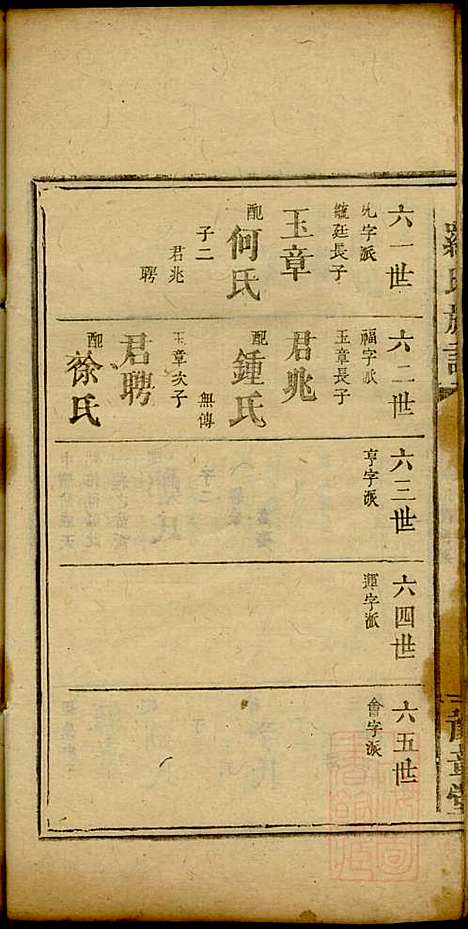 羅氏族譜
豫章堂
六一世
字派
廷長子
玉章
配何氏
子二
君兆
聘
六二世
福字派
玉章長子
君兆
配鍾氏
無傳
玉章次子
君聘
配徐氏
六三世
亨字派
六四世
運字派
六五世
會字派